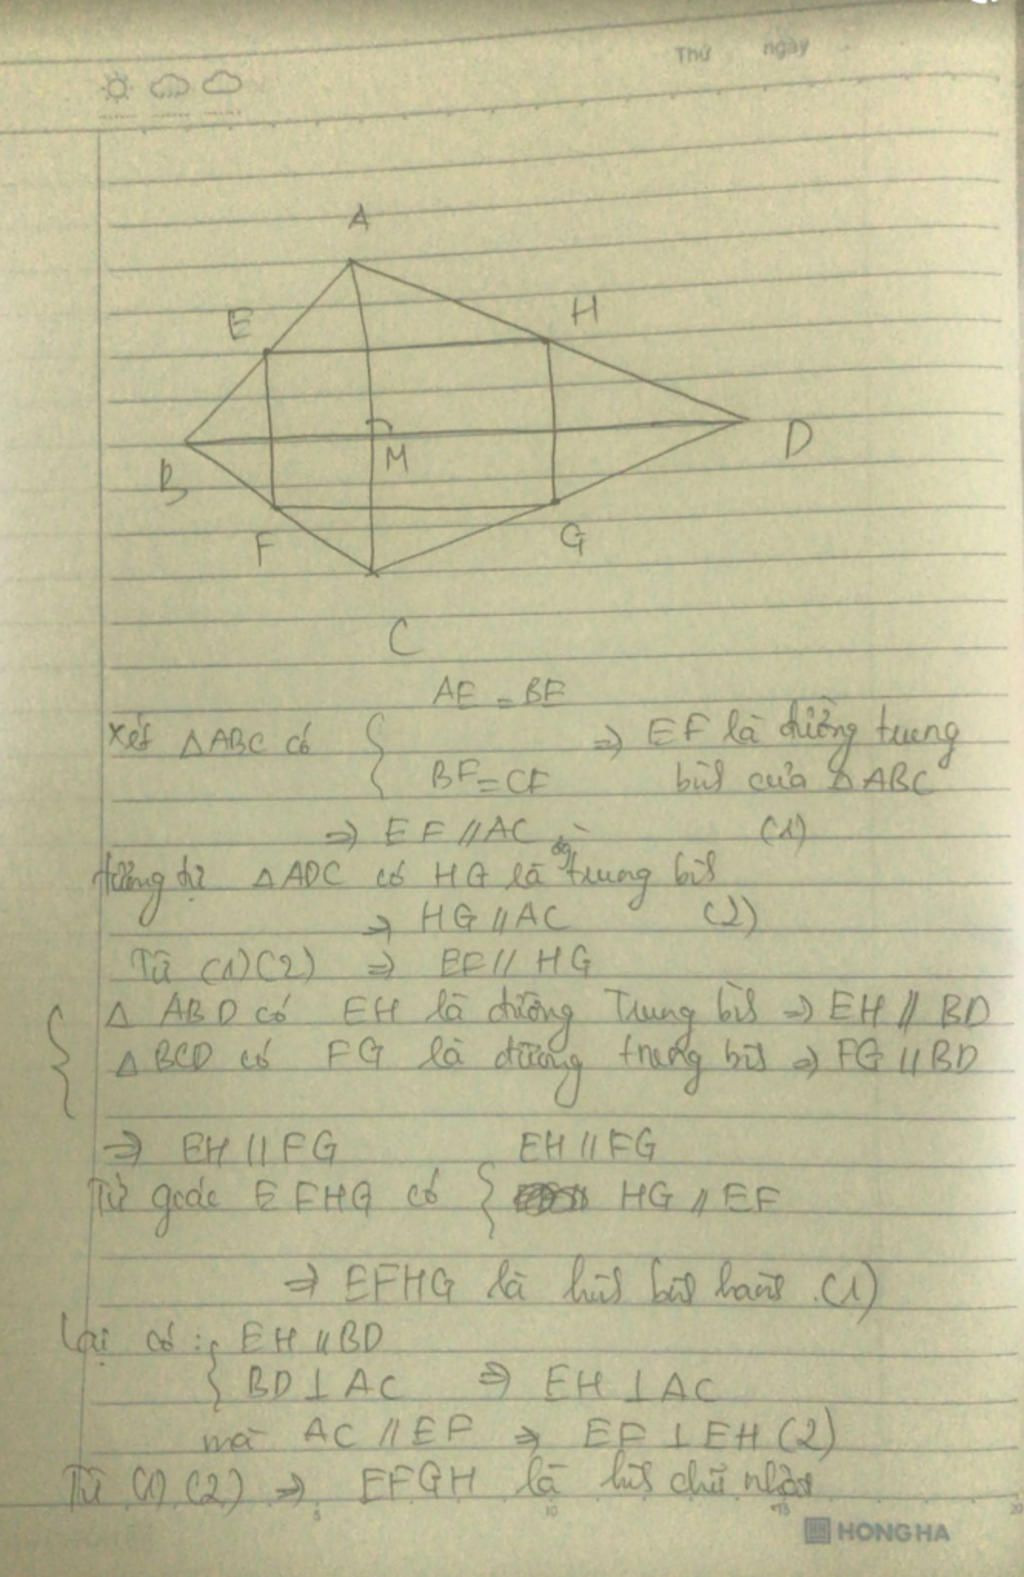 Thứ ngày
A
E
H
B
M
D
F
G
C
AE = BE
Xét △ABC có { ⇒ EF là đường trung
BF = CF bình của △ABC
⇒ EF // AC (1)
tương tự △ADC có HG là đg trung bình
⇒ HG // AC (2)
Từ (1)(2) ⇒ EF // HG
{ △ ABD có EH là đường Trung bình ⇒ EH // BD
△ BCD có FG là đường trung bình ⇒ FG // BD
⇒ EH // FG EH // FG
Tứ giác EFHG có { HG // EF
⇒ EFHG là hình bình hành (1)
Lại có : { EH // BD
BD ⊥ AC ⇒ EH ⊥ AC
mà AC // EF ⇒ EF ⊥ EH (2)
Từ (1) (2) ⇒ EFGH là hình chữ nhật
5 10 15 20
HONG HA